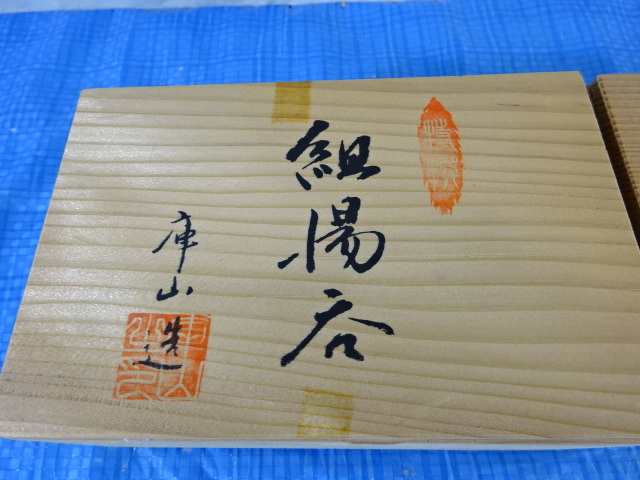 組湯呑
庫山造